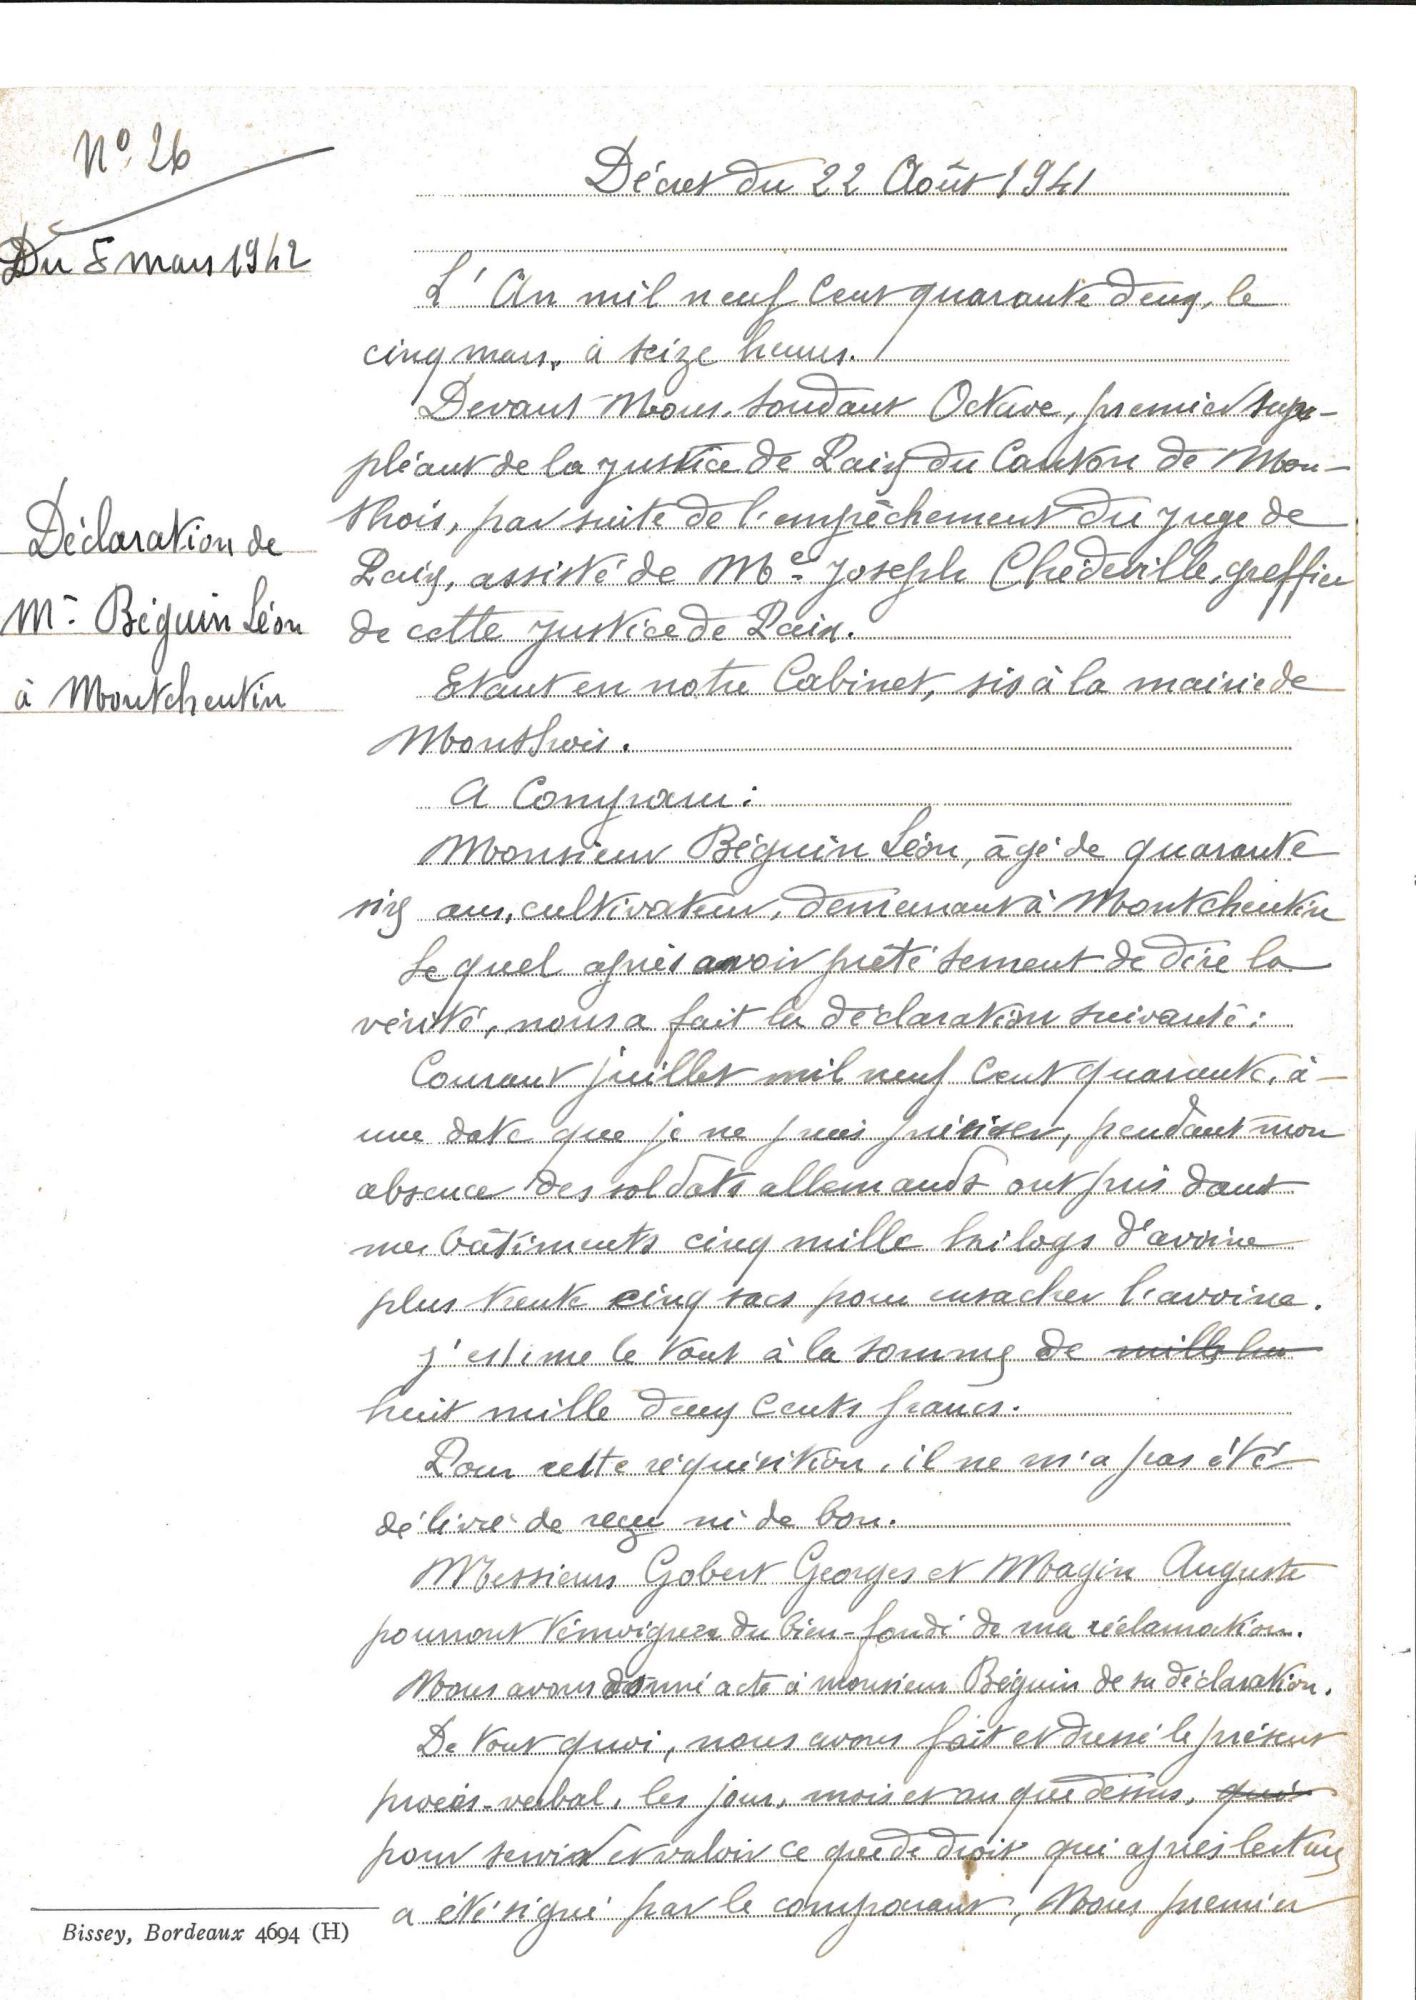 N° 26
Du 5 mars 1942
Déclaration de
Mr Béguin Léon
à Montcheutin
Décret du 22 Août 1941
L'An mil neuf cent quarante deux, le
cinq mars, à seize heures.
Devant Nous, Soudant Octave, premier sup-
pléant de la Justice de Paix du Canton de Mon-
thois, par suite de l'empêchement du Juge de
Paix, assisté de Me Joseph Chédeville, greffier
de cette Justice de Paix.
Etant en notre Cabinet, sis à la mairie de
Monthois.
A Comparu :
Monsieur Béguin Léon, âgé de quarante
six ans, cultivateur, demeurant à Montcheutin
Lequel après avoir prêté serment de dire la
vérité, nous a fait la déclaration suivante :
Courant juillet mil neuf cent quarante, à
une date que je ne puis préciser, pendant mon
absence des soldats allemands ont pris dans
mes bâtiments cinq mille kilogs d'avoine
plus trente cinq sacs pour ensacher l'avoine.
J'estime le tout à la somme de mille hu
huit mille deux cents francs.
Pour cette réquisition, il ne m'a pas été
délivré de reçu ni de bon.
Messieurs Gobert Georges et Magin Auguste
pourront témoigner du bien-fondé de ma réclamation.
Nous avons donné acte à monsieur Béguin de sa déclaration.
De tout quoi, nous avons fait et dressé le présent
procès-verbal, les jour, mois et an que dessus, qui
pour servir et valoir ce que de droit qui après lecture
a été signé par le comparant, Nous premier
Bissey, Bordeaux 4694 (H)